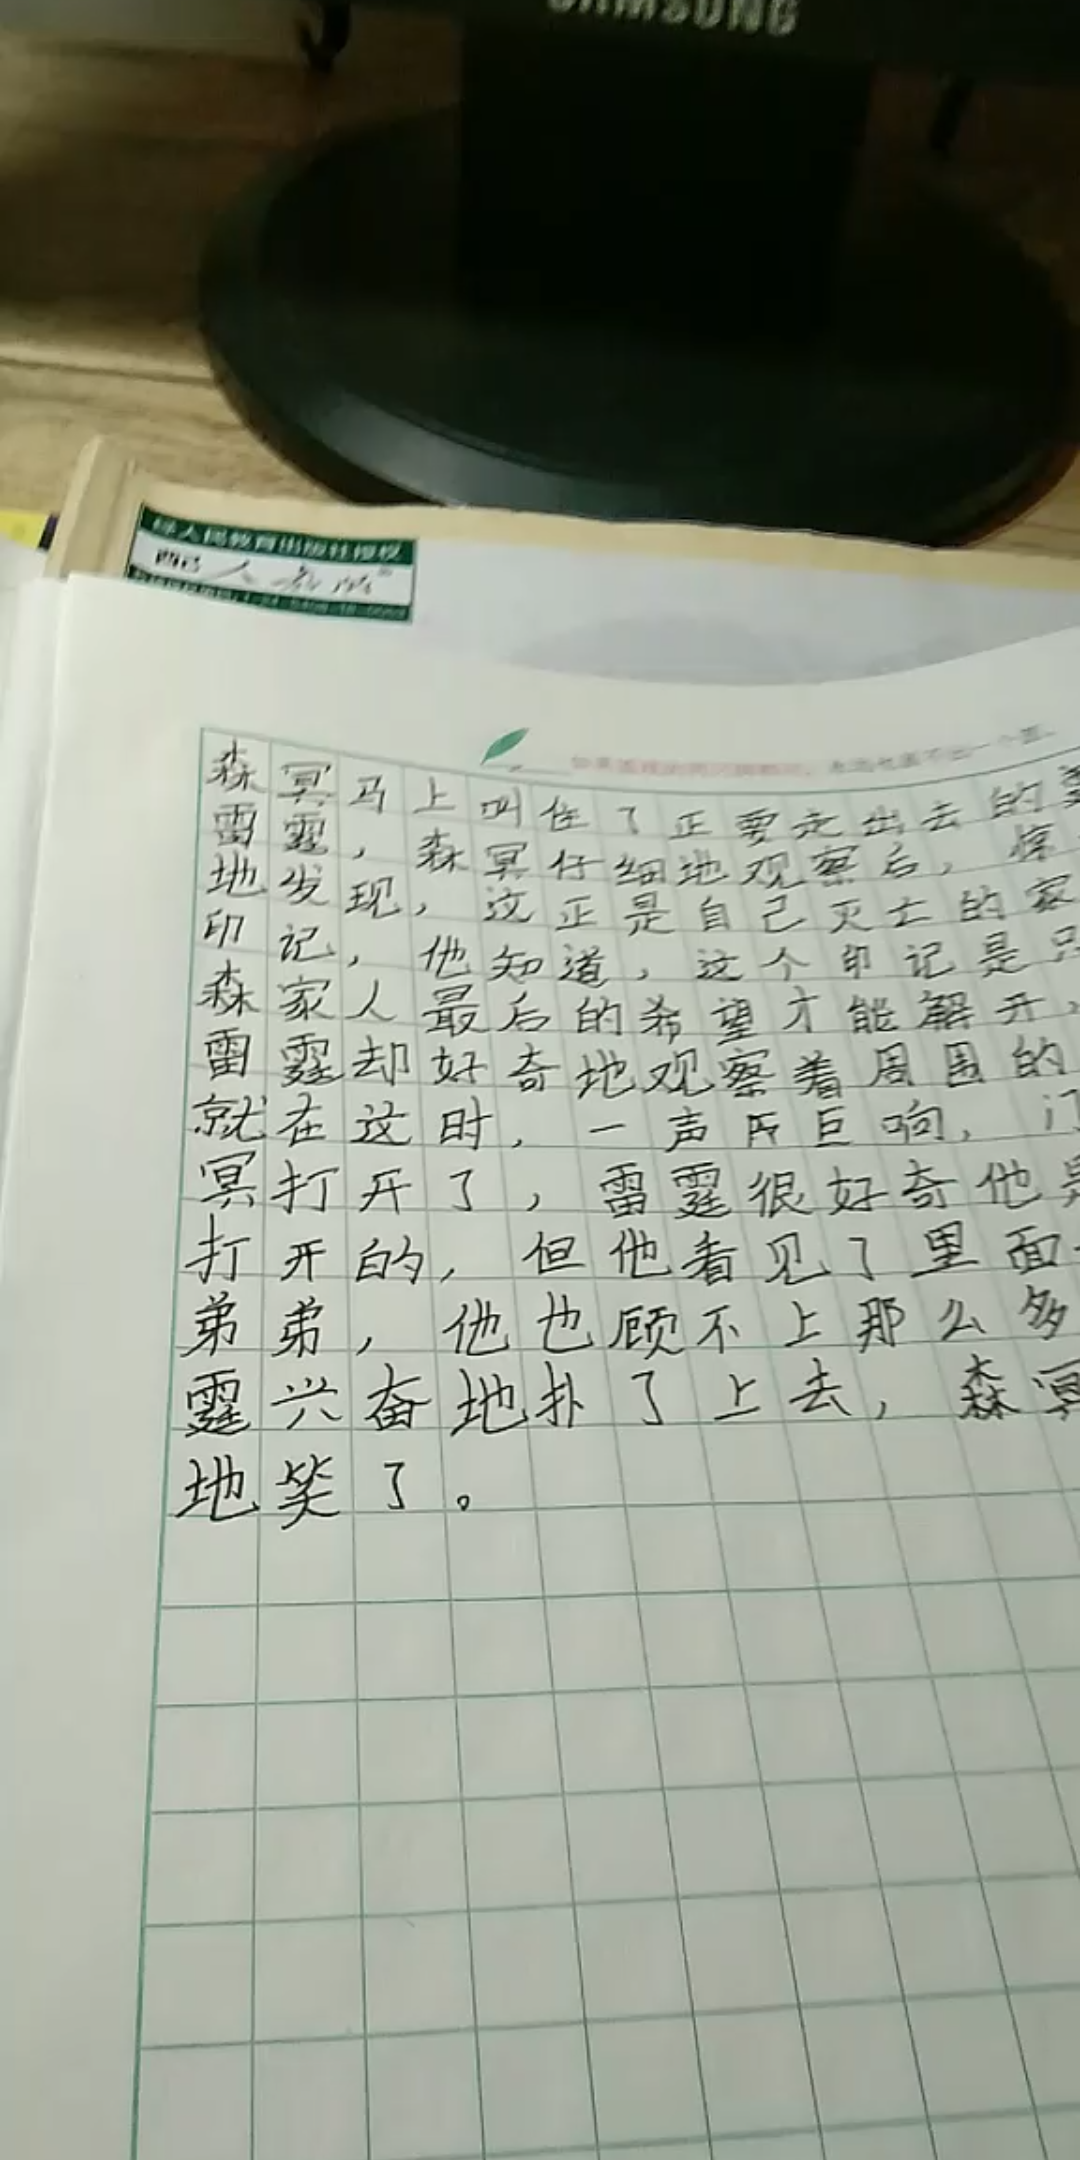 SAMSUNG
经人民教育出版社授权
配人教版
森冥马上叫住了正要走出去的
雷霆，森冥仔细地观察后，惊
地发现，这正是自己灭亡的家
印记，他知道，这个印记是只
森家人最后的希望才能解开，
雷霆却好奇地观察着周围的
就在这时，一声巨响，门
冥打开了，雷霆很好奇他是
打开的，但他看见了里面
弟弟，他也顾不上那么多
霆兴奋地扑了上去，森冥
地笑了。